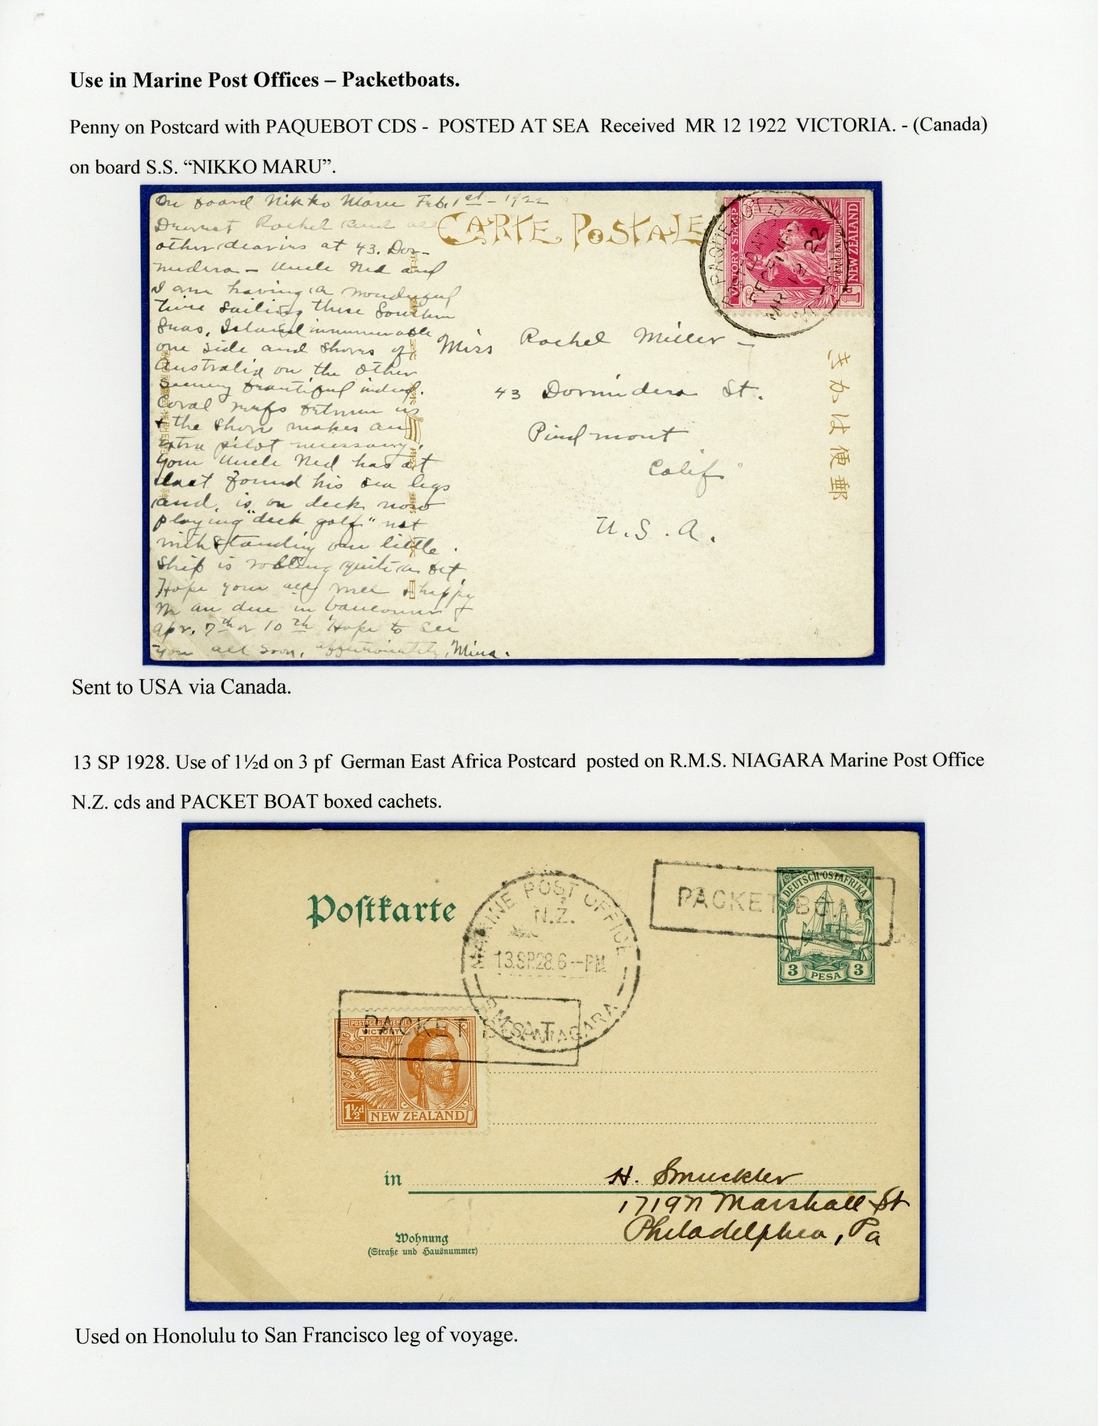 Use in Marine Post Offices – Packetboats.
Penny on Postcard with PAQUEBOT CDS - POSTED AT SEA Received MR 12 1922 VICTORIA. - (Canada)
on board S.S. “NIKKO MARU”.
On board Nikko Maru Feb. 1st - 1922
Dearest Rachel and all
other dearies at 43. Dor-
midera – Uncle Ned and
I am having a wonderful
time sailing these Southern
Seas, Island innumerable
one side and shores of
Australia on the other
Scenery beautiful indeed.
Coral reefs between us
+ the shore makes an
extra pilot necessary.
Your Uncle Ned has at
last found his sea legs
and, is on deck now
playing "deck golf" not
withstanding our little
ship is rolling quite a bit
Hope your all well + happy
We are due in Vancouver
Apr. 7th or 10th Hope to see
you all soon, affectionately, Mina.
CARTE POSTALE
VICTORY STAMP
NEW ZEALAND
PAQUEBOT
RECEIVED
MAR 12 22
Miss Rachel Miller –
43 Dormidera St.
Piedmont
Calif
U.S.A.
きかは便郵
Sent to USA via Canada.
13 SP 1928. Use of 1½d on 3 pf German East Africa Postcard posted on R.M.S. NIAGARA Marine Post Office
N.Z. cds and PACKET BOAT boxed cachets.
Poſtkarte
MARINE POST OFFICE
N.Z.
13.SP.28.6--PM
R.M.S. NIAGARA
PACKET BOAT
DEUTSCH-OSTAFRIKA
3 PESA 3
PACKET BOAT
VICTORY
1½d NEW ZEALAND
in
H. Smuckler
1719 N Marshall St
Philadelphia, Pa
Wohnung
(Straße und Hausnummer)
Used on Honolulu to San Francisco leg of voyage.